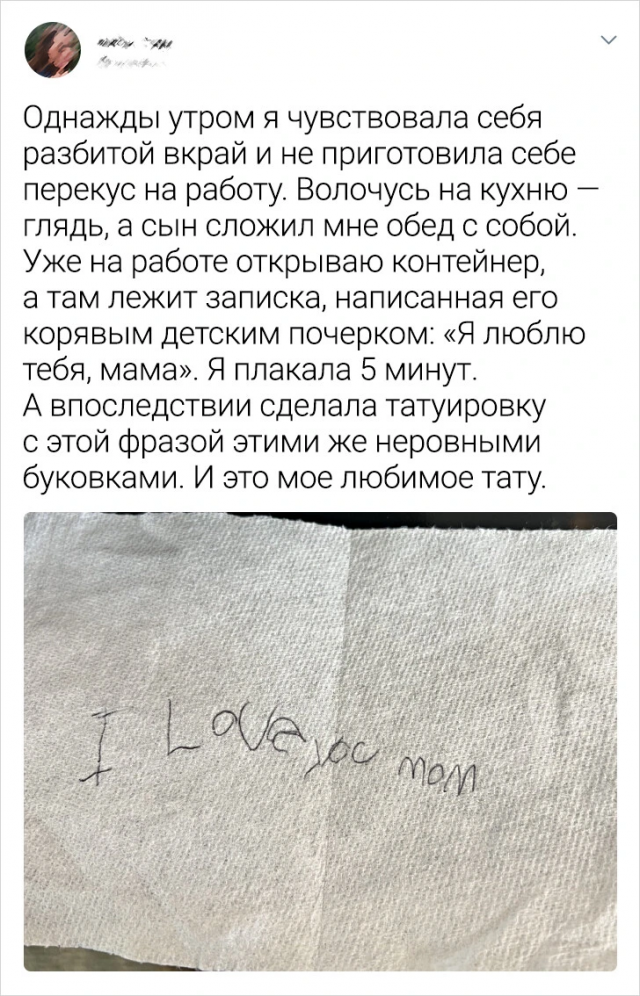 Однажды утром я чувствовала себя
разбитой вкрай и не приготовила себе
перекус на работу. Волочусь на кухню —
глядь, а сын сложил мне обед с собой.
Уже на работе открываю контейнер,
а там лежит записка, написанная его
корявым детским почерком: «Я люблю
тебя, мама». Я плакала 5 минут.
А впоследствии сделала татуировку
с этой фразой этими же неровными
буковками. И это мое любимое тату.
I Love yoc mom